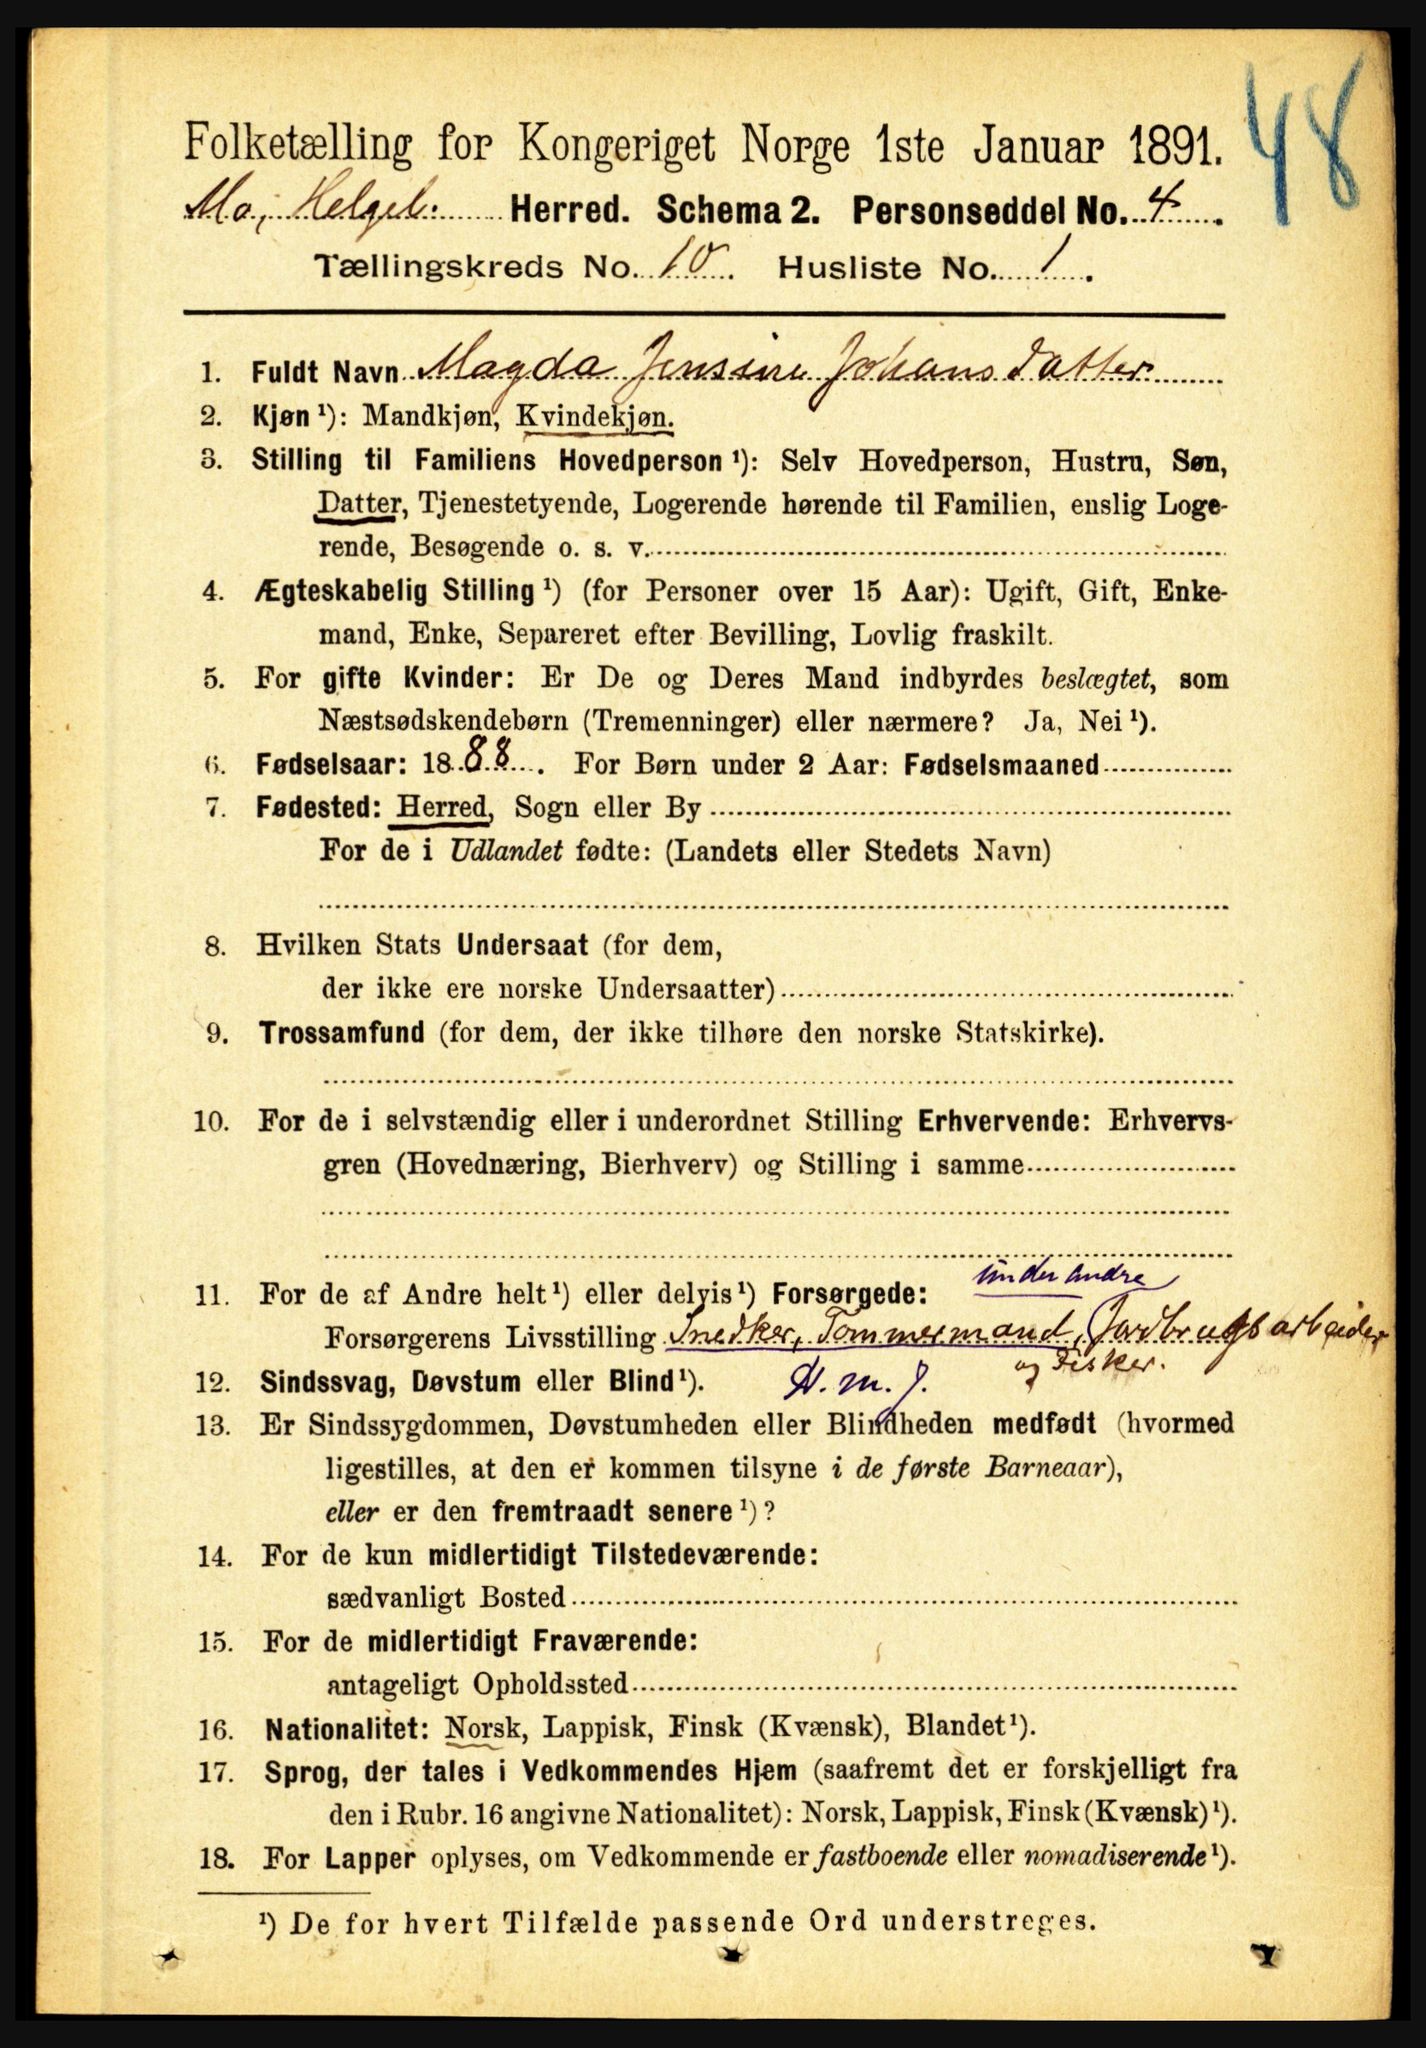 48
Folketælling for Kongeriget Norge 1ste Januar 1891.
Mo, Helgel. Herred. Schema 2. Personseddel No. 4.
Tællingskreds No. 10. Husliste No. 1.
1. Fuldt Navn Magda Jensine Johans Datter
2. Kjøn ¹): Mandkjøn, Kvindekjøn.
3. Stilling til Familiens Hovedperson ¹): Selv Hovedperson, Hustru, Søn,
Datter, Tjenestetyende, Logerende hørende til Familien, enslig Loge-
rende, Besøgende o. s. v.
4. Ægteskabelig Stilling ¹) (for Personer over 15 Aar): Ugift, Gift, Enke-
mand, Enke, Separeret efter Bevilling, Lovlig fraskilt.
5. For gifte Kvinder: Er De og Deres Mand indbyrdes beslægtet, som
Næstsødskendebørn (Tremenninger) eller nærmere? Ja, Nei ¹).
6. Fødselsaar: 1888. For Børn under 2 Aar: Fødselsmaaned
7. Fødested: Herred, Sogn eller By
For de i Udlandet fødte: (Landets eller Stedets Navn)
8. Hvilken Stats Undersaat (for dem,
der ikke ere norske Undersaatter)
9. Trossamfund (for dem, der ikke tilhøre den norske Statskirke).
10. For de i selvstændig eller i underordnet Stilling Erhvervende: Erhvervs-
gren (Hovednæring, Bierhverv) og Stilling i samme
under andre
11. For de af Andre helt ¹) eller delvis ¹) Forsørgede:
Forsørgerens Livsstilling Snedker, Tømmermand, Jordbrugsarbeider
og Fisker.
12. Sindssvag, Døvstum eller Blind ¹). H. m. J.
13. Er Sindssygdommen, Døvstumheden eller Blindheden medfødt (hvormed
ligestilles, at den er kommen tilsyne i de første Barneaar),
eller er den fremtraadt senere ¹)?
14. For de kun midlertidigt Tilstedeværende:
sædvanligt Bosted
15. For de midlertidigt Fraværende:
antageligt Opholdssted
16. Nationalitet: Norsk, Lappisk, Finsk (Kvænsk), Blandet ¹).
17. Sprog, der tales i Vedkommendes Hjem (saafremt det er forskjelligt fra
den i Rubr. 16 angivne Nationalitet): Norsk, Lappisk, Finsk (Kvænsk) ¹).
18. For Lapper oplyses, om Vedkommende er fastboende eller nomadiserende ¹).
¹) De for hvert Tilfælde passende Ord understreges.